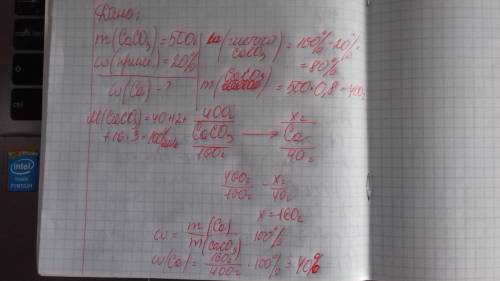 Дано:
m(CaCO₃)=500г
ω(прим.)=20%
ω(Ca)-?
ω(чистого CaCO₃)=100%-20%=
=80%
m(CaCO₃)=500·0,8=400г
M(CaCO₃)=40+12+
+16·3=100г/моль
400г xг
CaCO₃ ⟶ Ca
100г 40г
400г/100г = xг/40г
x=160г
ω= m(Ca)/m(CaCO₃) · 100%
ω(Ca)= 160г/400г · 100% = 40%
intel
inside
PENTIUM